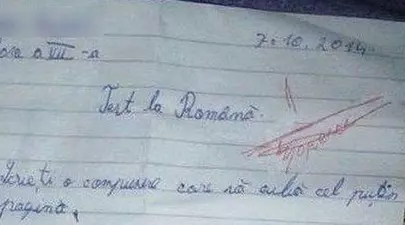 a VII-a
7.10.2014
Test la Română.
Scrieți o compunere care să aibă cel puțin
pagină.